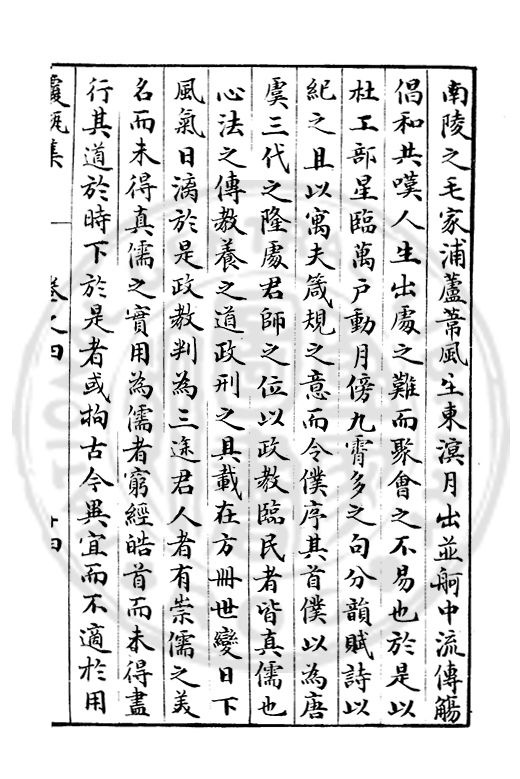 南陵之毛家浦蘆葦風生東溟月出並舸中流傳觴
倡和共嘆人生出處之難而聚會之不易也於是以
杜工部星臨萬戶動月傍九霄多之句分韻賦詩以
紀之且以寓夫箴規之意而令僕序其首僕以為唐
虞三代之隆處君師之位以政教臨民者皆真儒也
心法之傳教養之道政刑之具載在方冊世變日下
風氣日漓於是政教判為三途君人者有崇儒之美
名而未得真儒之實用為儒者窮經皓首而未得盡
行其道於時下於是者或拘古今異宜而不適於用
集 卷之四 十四